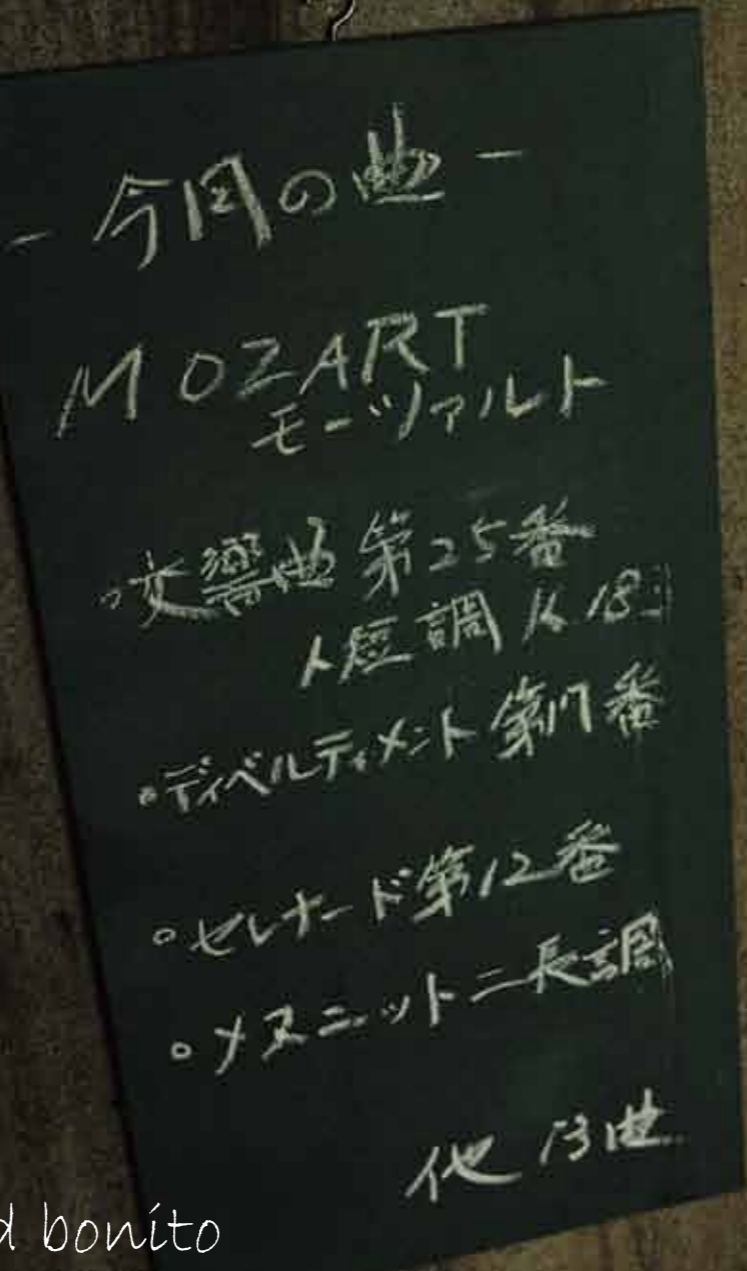 - 今回の曲 -
MOZART
モーツァルト
○交響曲 第25番
ト短調 K 183
○ディベルティメント 第17番
○セレナード第12番
○メヌエットニ長調
他 13曲
d bonito